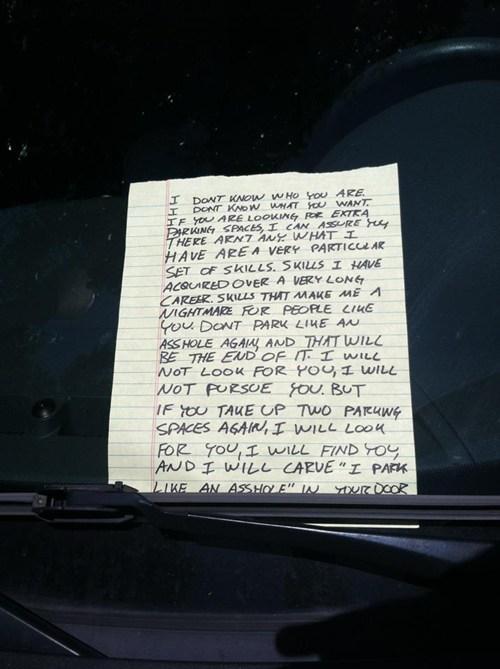 I DONT KNOW WHO YOU ARE.
I DONT KNOW WHAT YOU WANT.
IF YOU ARE LOOKING FOR EXTRA
PARKING SPACES, I CAN ASSURE YOU
THERE ARNT ANY. WHAT I
HAVE ARE A VERY PARTICULAR
SET OF SKILLS. SKILLS I HAVE
ACQUIRED OVER A VERY LONG
CAREER. SKILLS THAT MAKE ME A
NIGHTMARE FOR PEOPLE LIKE
YOU. DONT PARK LIKE AN
ASSHOLE AGAIN, AND THAT WILL
BE THE END OF IT. I WILL
NOT LOOK FOR YOU, I WILL
NOT PURSUE YOU. BUT
IF YOU TAKE UP TWO PARKING
SPACES AGAIN, I WILL LOOK
FOR YOU, I WILL FIND YOU,
AND I WILL CARVE "I PARK
LIKE AN ASSHOLE" IN YOUR DOOR